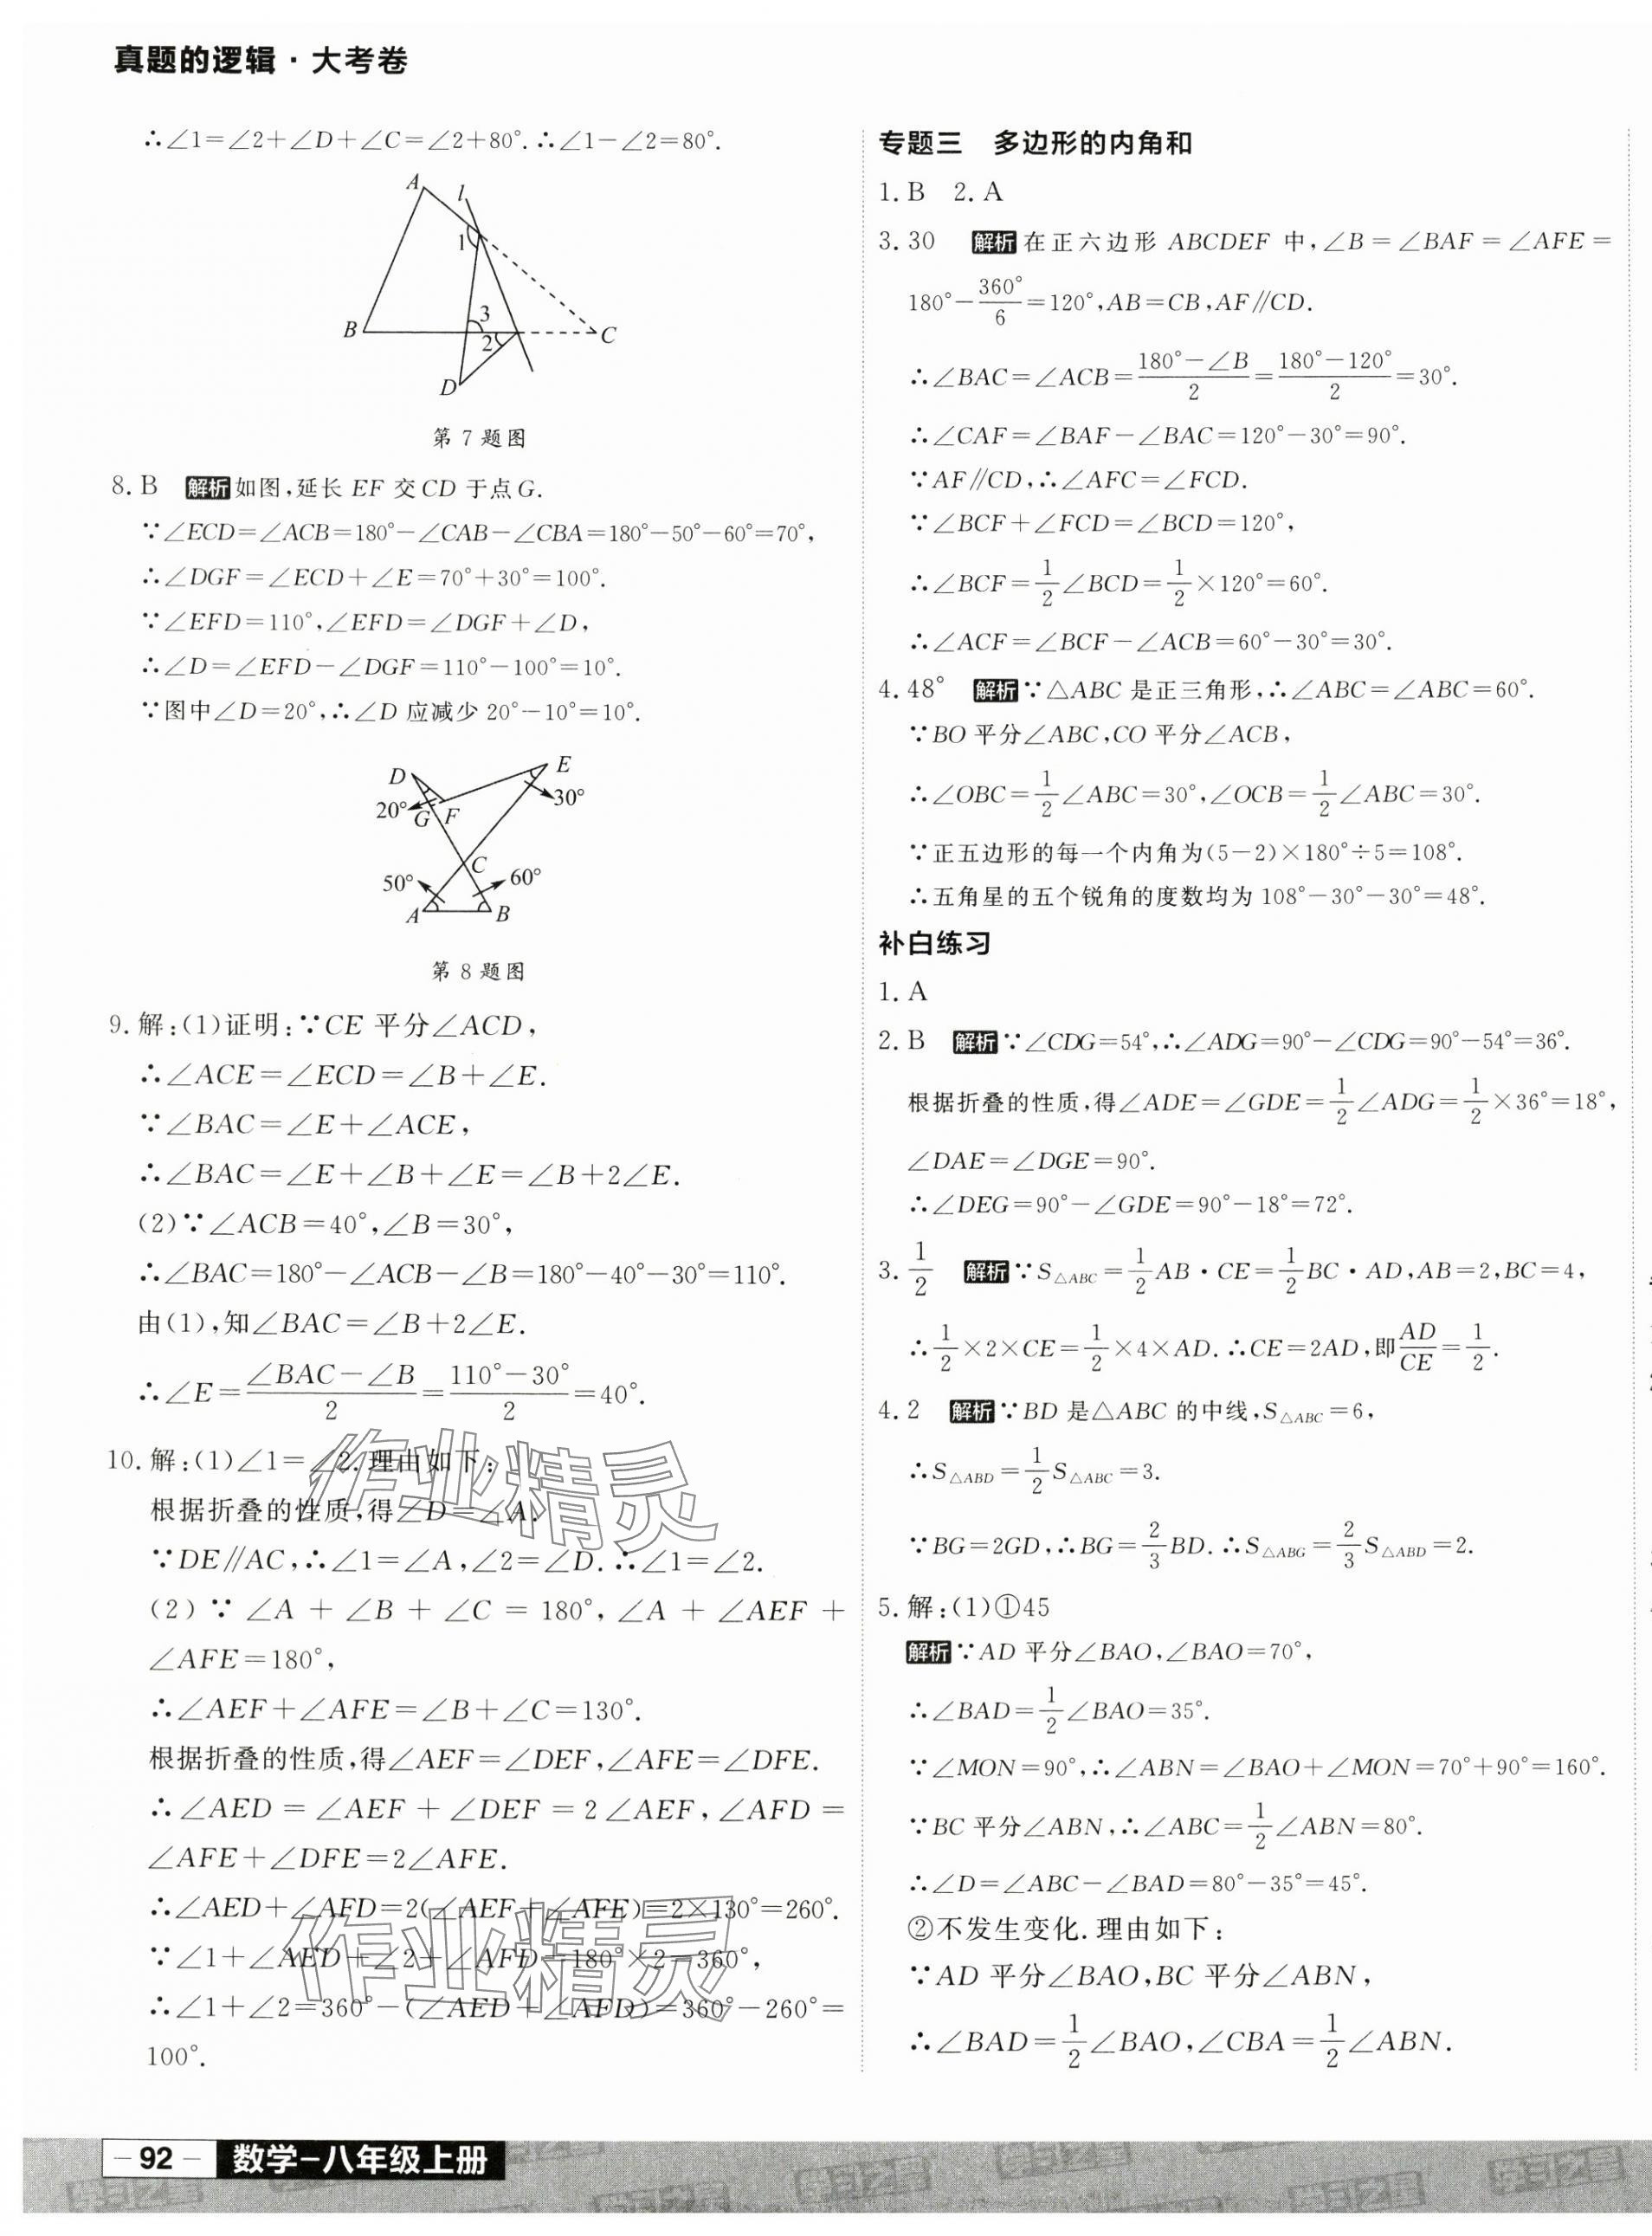 真题的逻辑·大考卷
∴∠1=∠2+∠D+∠C=∠2+80°.∴∠1-∠2=80°.
A
l
1
B
3
2
C
D
第7题图
8. B 解析 如图,延长 EF 交 CD 于点 G.
∵∠ECD=∠ACB=180°-∠CAB-∠CBA=180°-50°-60°=70°,
∴∠DGF=∠ECD+∠E=70°+30°=100°.
∵∠EFD=110°,∠EFD=∠DGF+∠D,
∴∠D=∠EFD-∠DGF=110°-100°=10°.
∵图中∠D=20°,∴∠D 应减少 20°-10°=10°.
D
E
20°
30°
G
F
C
50°
60°
A
B
第8题图
9. 解:(1)证明:∵CE 平分∠ACD,
∴∠ACE=∠ECD=∠B+∠E.
∵∠BAC=∠E+∠ACE,
∴∠BAC=∠E+∠B+∠E=∠B+2∠E.
(2)∵∠ACB=40°,∠B=30°,
∴∠BAC=180°-∠ACB-∠B=180°-40°-30°=110°.
由(1),知∠BAC=∠B+2∠E.
∴∠E=(∠BAC-∠B)/2=(110°-30°)/2=40°.
10. 解:(1)∠1=∠2.理由如下:
根据折叠的性质,得∠D=∠A.
∵DE∥AC,∴∠1=∠A,∠2=∠D.∴∠1=∠2.
(2)∵∠A+∠B+∠C=180°,∠A+∠AEF+
∠AFE=180°,
∴∠AEF+∠AFE=∠B+∠C=130°.
根据折叠的性质,得∠AEF=∠DEF,∠AFE=∠DFE.
∴∠AED=∠AEF+∠DEF=2∠AEF,∠AFD=
∠AFE+∠DFE=2∠AFE.
∴∠AED+∠AFD=2(∠AEF+∠AFE)=2×130°=260°.
∵∠1+∠AED+∠2+∠AFD=180°×2=360°,
∴∠1+∠2=360°-(∠AED+∠AFD)=360°-260°=
100°.
作业精灵
作业精灵
专题三 多边形的内角和
1. B 2. A
3. 30 解析 在正六边形 ABCDEF 中,∠B=∠BAF=∠AFE=
180°-360°/6=120°,AB=CB,AF∥CD.
∴∠BAC=∠ACB=(180°-∠B)/2=(180°-120°)/2=30°.
∴∠CAF=∠BAF-∠BAC=120°-30°=90°.
∵AF∥CD,∴∠AFC=∠FCD.
∵∠BCF+∠FCD=∠BCD=120°,
∴∠BCF=1/2∠BCD=1/2×120°=60°.
∴∠ACF=∠BCF-∠ACB=60°-30°=30°.
4. 48° 解析 ∵△ABC 是正三角形,∴∠ABC=∠ABC=60°.
∵BO 平分∠ABC,CO 平分∠ACB,
∴∠OBC=1/2∠ABC=30°,∠OCB=1/2∠ABC=30°.
∵正五边形的每一个内角为(5-2)×180°÷5=108°.
∴五角星的五个锐角的度数均为 108°-30°-30°=48°.
补白练习
1. A
2. B 解析 ∵∠CDG=54°,∴∠ADG=90°-∠CDG=90°-54°=36°.
根据折叠的性质,得∠ADE=∠GDE=1/2∠ADG=1/2×36°=18°,
∠DAE=∠DGE=90°.
∴∠DEG=90°-∠GDE=90°-18°=72°.
3. 1/2 解析 ∵S△ABC=1/2AB·CE=1/2BC·AD,AB=2,BC=4,
∴1/2×2×CE=1/2×4×AD.∴CE=2AD,即AD/CE=1/2.
4. 2 解析 ∵BD 是△ABC 的中线,S△ABC=6,
∴S△ABD=1/2S△ABC=3.
∵BG=2GD,∴BG=2/3BD.∴S△ABG=2/3S△ABD=2.
5. 解:(1)①45
解析 ∵AD 平分∠BAO,∠BAO=70°,
∴∠BAD=1/2∠BAO=35°.
∵∠MON=90°,∴∠ABN=∠BAO+∠MON=70°+90°=160°.
∵BC 平分∠ABN,∴∠ABC=1/2∠ABN=80°.
∴∠D=∠ABC-∠BAD=80°-35°=45°.
②不发生变化.理由如下:
∵AD 平分∠BAO,BC 平分∠ABN,
∴∠BAD=1/2∠BAO,∠CBA=1/2∠ABN.
-92- 数学-八年级上册